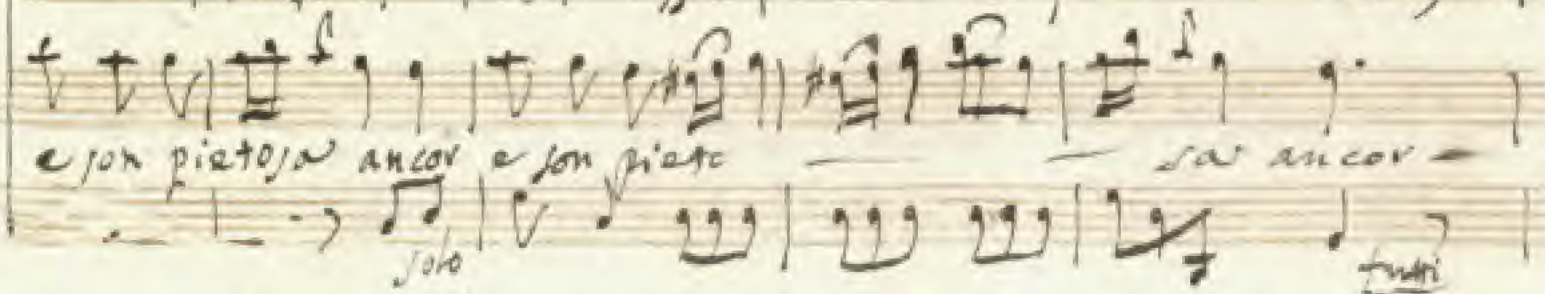 e son pietosa ancor e son pieto — — sa ancor —
solo
tutti